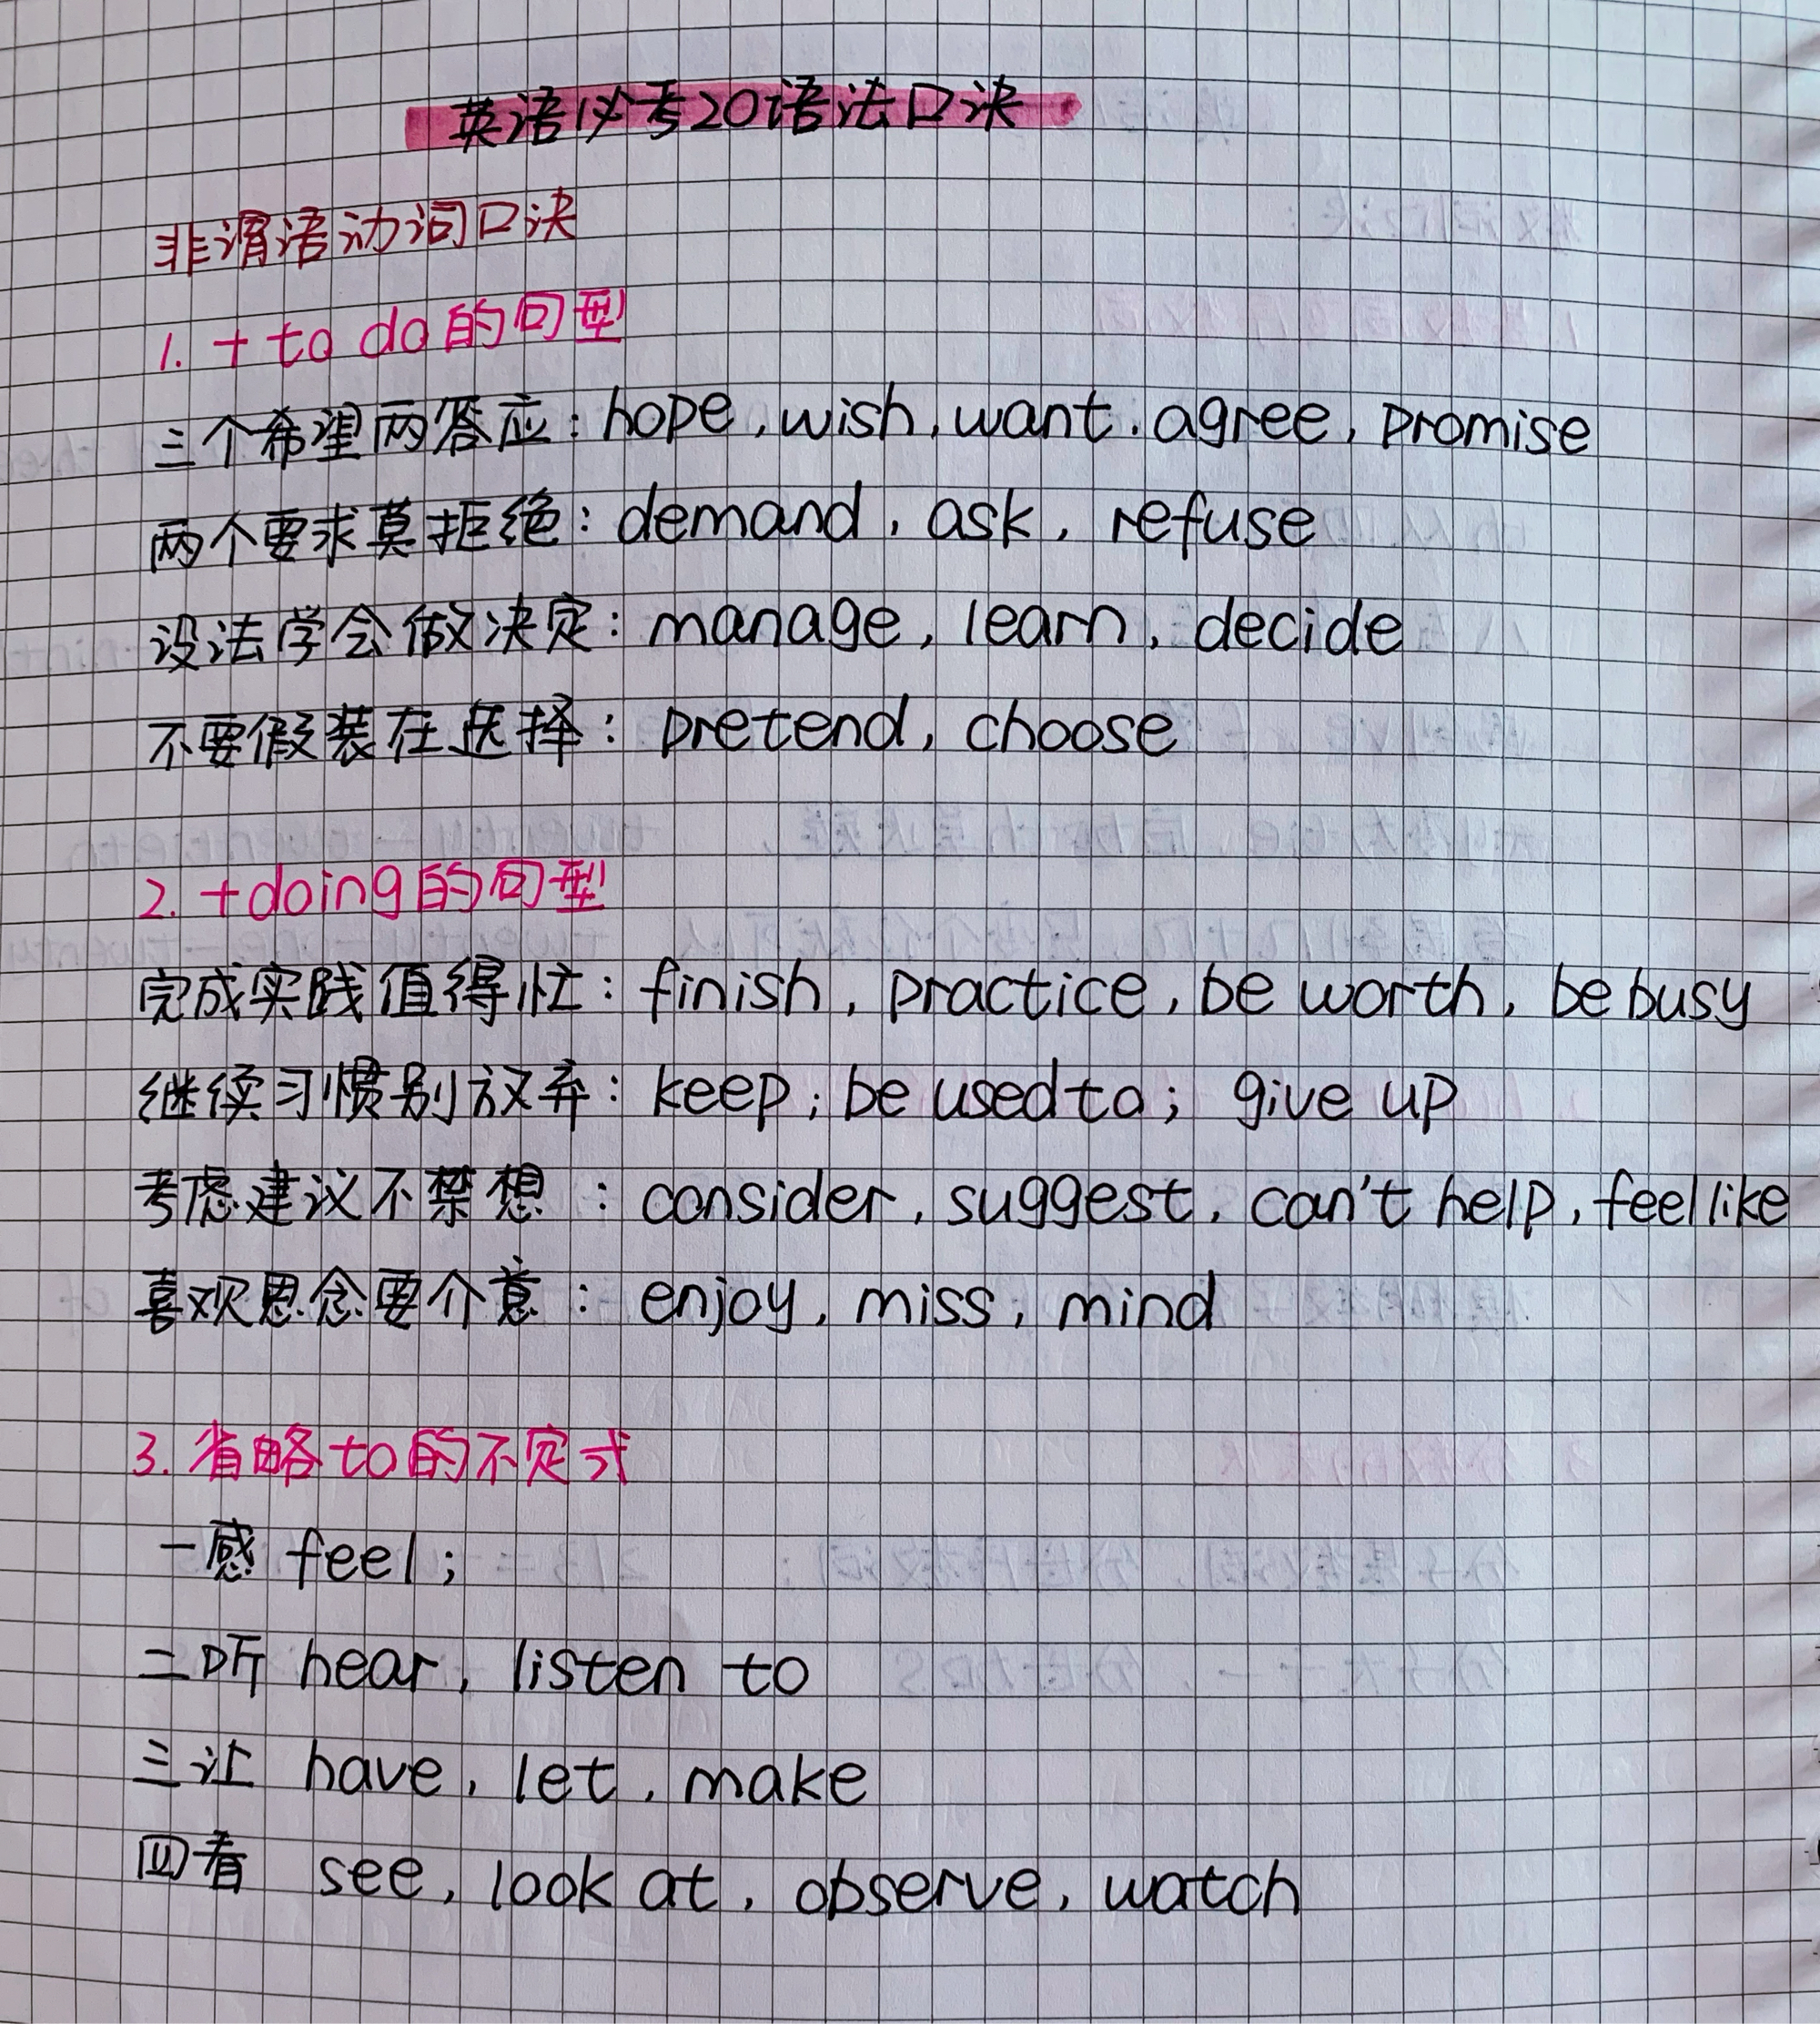 英语必考20语法口诀
非谓语动词口诀
1. + to do的句型
三个希望两答应: hope, wish, want. agree, promise
两个要求莫拒绝: demand, ask, refuse
设法学会做决定: manage, learn, decide
不要假装在选择: pretend, choose
2. +doing的句型
完成实践值得忙: finish, practice, be worth, be busy
继续习惯别放弃: keep; be used to; give up
考虑建议不禁想: consider, suggest, can't help, feel like
喜欢思念要介意: enjoy, miss, mind
3. 省略to的不定式
一感 feel;
二听 hear, listen to
三让 have, let, make
四看 see, look at, observe, watch